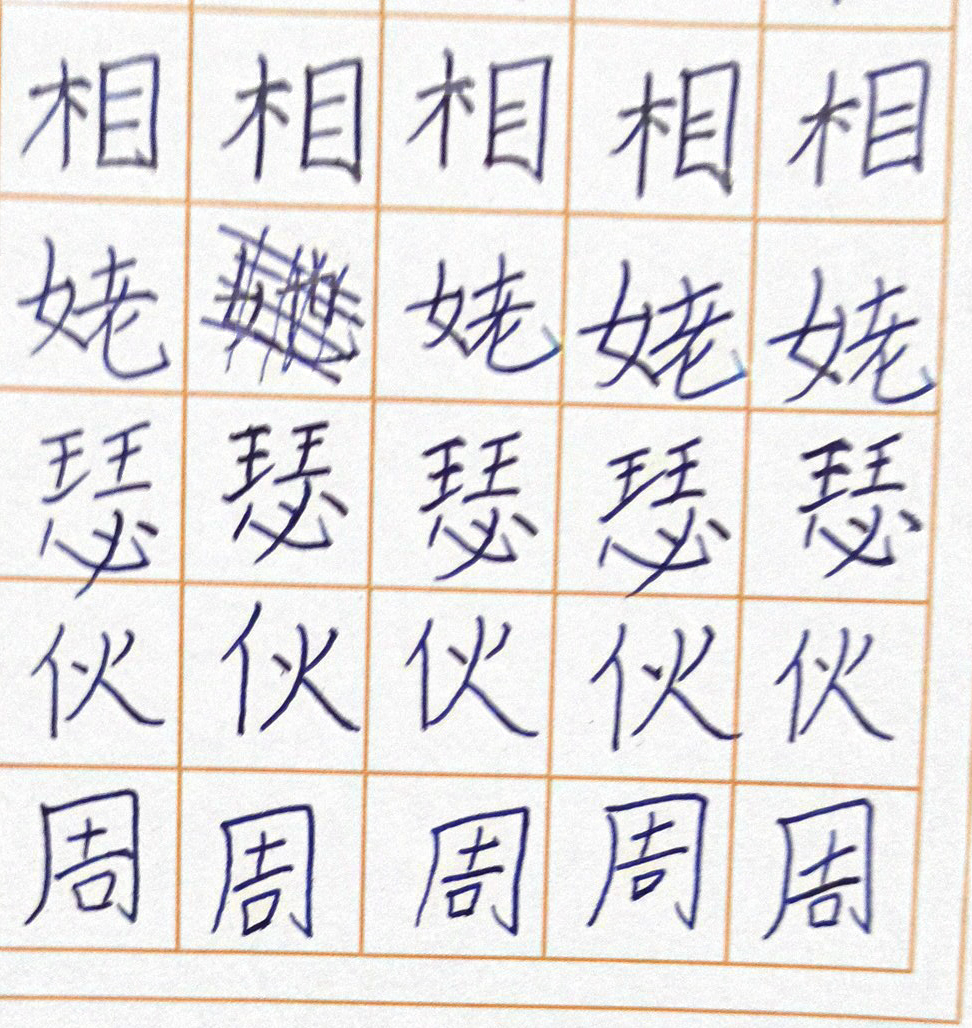 相相相相相
姥姥姥姥
瑟瑟瑟瑟瑟
伙伙伙伙伙
周周周周周